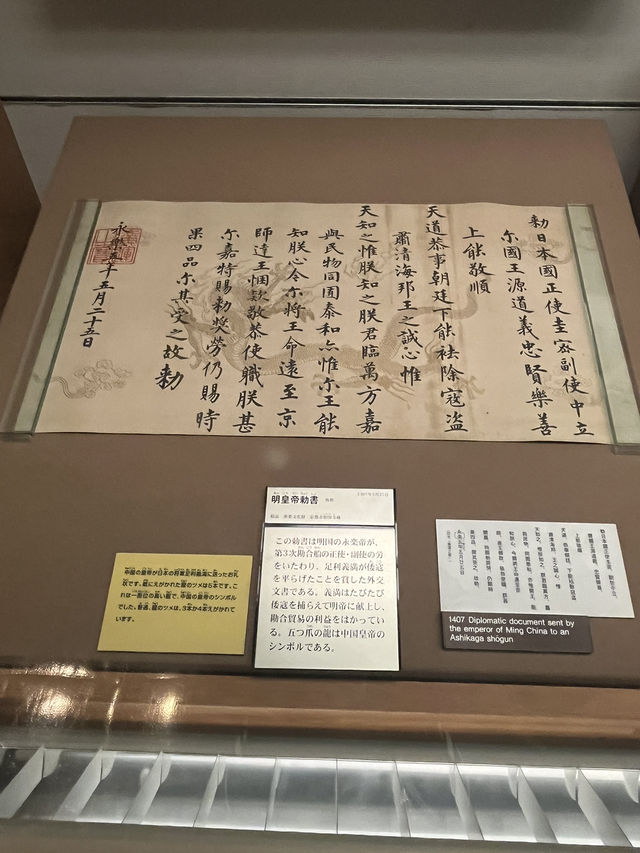 勅日本國正使圭密副使中立
尓國王源道義忠賢樂善
上能敬順
天道恭事朝廷下能祛除寇盗
肅清海邦王之誠心惟
天知之惟朕知之朕君臨萬方嘉
與民物同囿泰和亦惟尓王能
知朕心今尓将王命遠至京
師達王悃欵敬恭使職朕甚
尓嘉特賜勅奨勞仍賜時
果四品尓其受之故勅
永樂五年五月二十五日
中国の皇帝が日本の将軍足利義満に送ったお礼
状です。龍にえがかれた龍のツメは5本です。こ
れは一番位の高い龍で、中国の皇帝のシンボル
でした。普通、龍のツメは、3本か4本えがかれて
います。
明皇帝勅書 複製
1407年5月25日
この勅書は明国の永楽帝が、
第3次勘合船の正使・副使の労
をいたわり、足利義満が倭寇
を平らげたことを賞した外交
文書である。義満はたびたび
倭寇を捕らえて明帝に献上し、
勘合貿易の利益をはかってい
る。五つ爪の龍は中国皇帝の
シンボルである。
1407 Diplomatic document sent by
the emperor of Ming China to an
Ashikaga shōgun